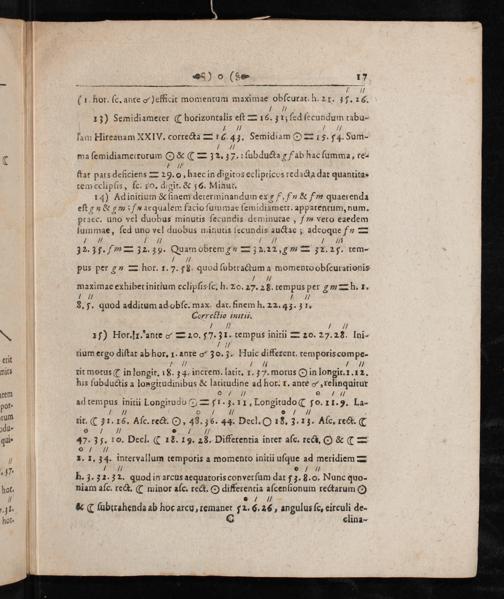 ) o ( 17
(1. hor. sc. ante ☌) efficit momentum maximae obscurat. h. 21. 35. 26.
13) Semidiameter ☾ horizontalis est = 16. 31; sed secundum tabu-
lam Hireanam XXIV. correcta = 16. 43. Semidiam ☉ = 15. 54. Sum-
ma semidiametrorum ☉ & ☾ = 32. 37. : subducta gf ab hac summa, re-
stat pars deficiens = 29. 0, haec in digitos eclipticos redacta dat quantita-
tem eclipsis, sc. 10. digit. & 56. Minut.
14) Ad initium & finem determinandum ex gf, fn & fm quaerenda
est gn & gm; fn aequalem facio summae semidiametr. apparentum, num.
praec. uno vel duobus minutis secundis deminutae, fm vero eaedem
summae, sed uno vel duobus minutis secundis auctae; adeoque fn =
32. 35. fm = 32. 39. Quam obrem gn = 32.22, gm = 32. 25. tem-
pus per gn = hor. 1. 7. 58. quod subtractum a momento obscurationis
maximae exhibet initium eclipsis sc. h. 20. 27. 28. tempus per gm = h. 1.
8. 5. quod additum ad obsc. max. dat. finem h. 22. 43. 31.
Correctio initii.
15) Hor. 1. ante ☌ = 20. 57. 31. tempus initii = 20. 27. 28. Ini-
tium ergo distat ab hor. 1. ante ☌ 30. 3. Huic different. temporis compe-
tit motus ☾ in longit. 18. 34. increm. latit. 1. 37. motus ☉ in longit. 1. 12.
his subductis a longitudinibus & latitudine ad hor. 1. ante ☌, relinquitur
ad tempus initii Longitudo ☉ = 51. 3. 11, Longitudo ☾ 50. 11. 9. La-
tit. ☾ 31. 16. Asc. rect. ☉, 48. 36. 44. Decl. ☉ 18. 3. 13. Asc. rect. ☾
47. 35. 10. Decl. ☾ 18. 19. 28. Differentia inter asc. rect. ☉ & ☾ =
1. 1. 34. intervallum temporis a momento initii usque ad meridiem =
h. 3. 32. 32. quod in arcus aequatoris conversum dat 53. 8. 0. Nunc quo-
niam asc. rect. ☾ minor asc. rect. ☉ differentia ascensionum rectarum ☉
& ☾ subtrahenda ab hoc arcu, remanet 52. 6. 26, angulus sc. circuli de-
C clina-